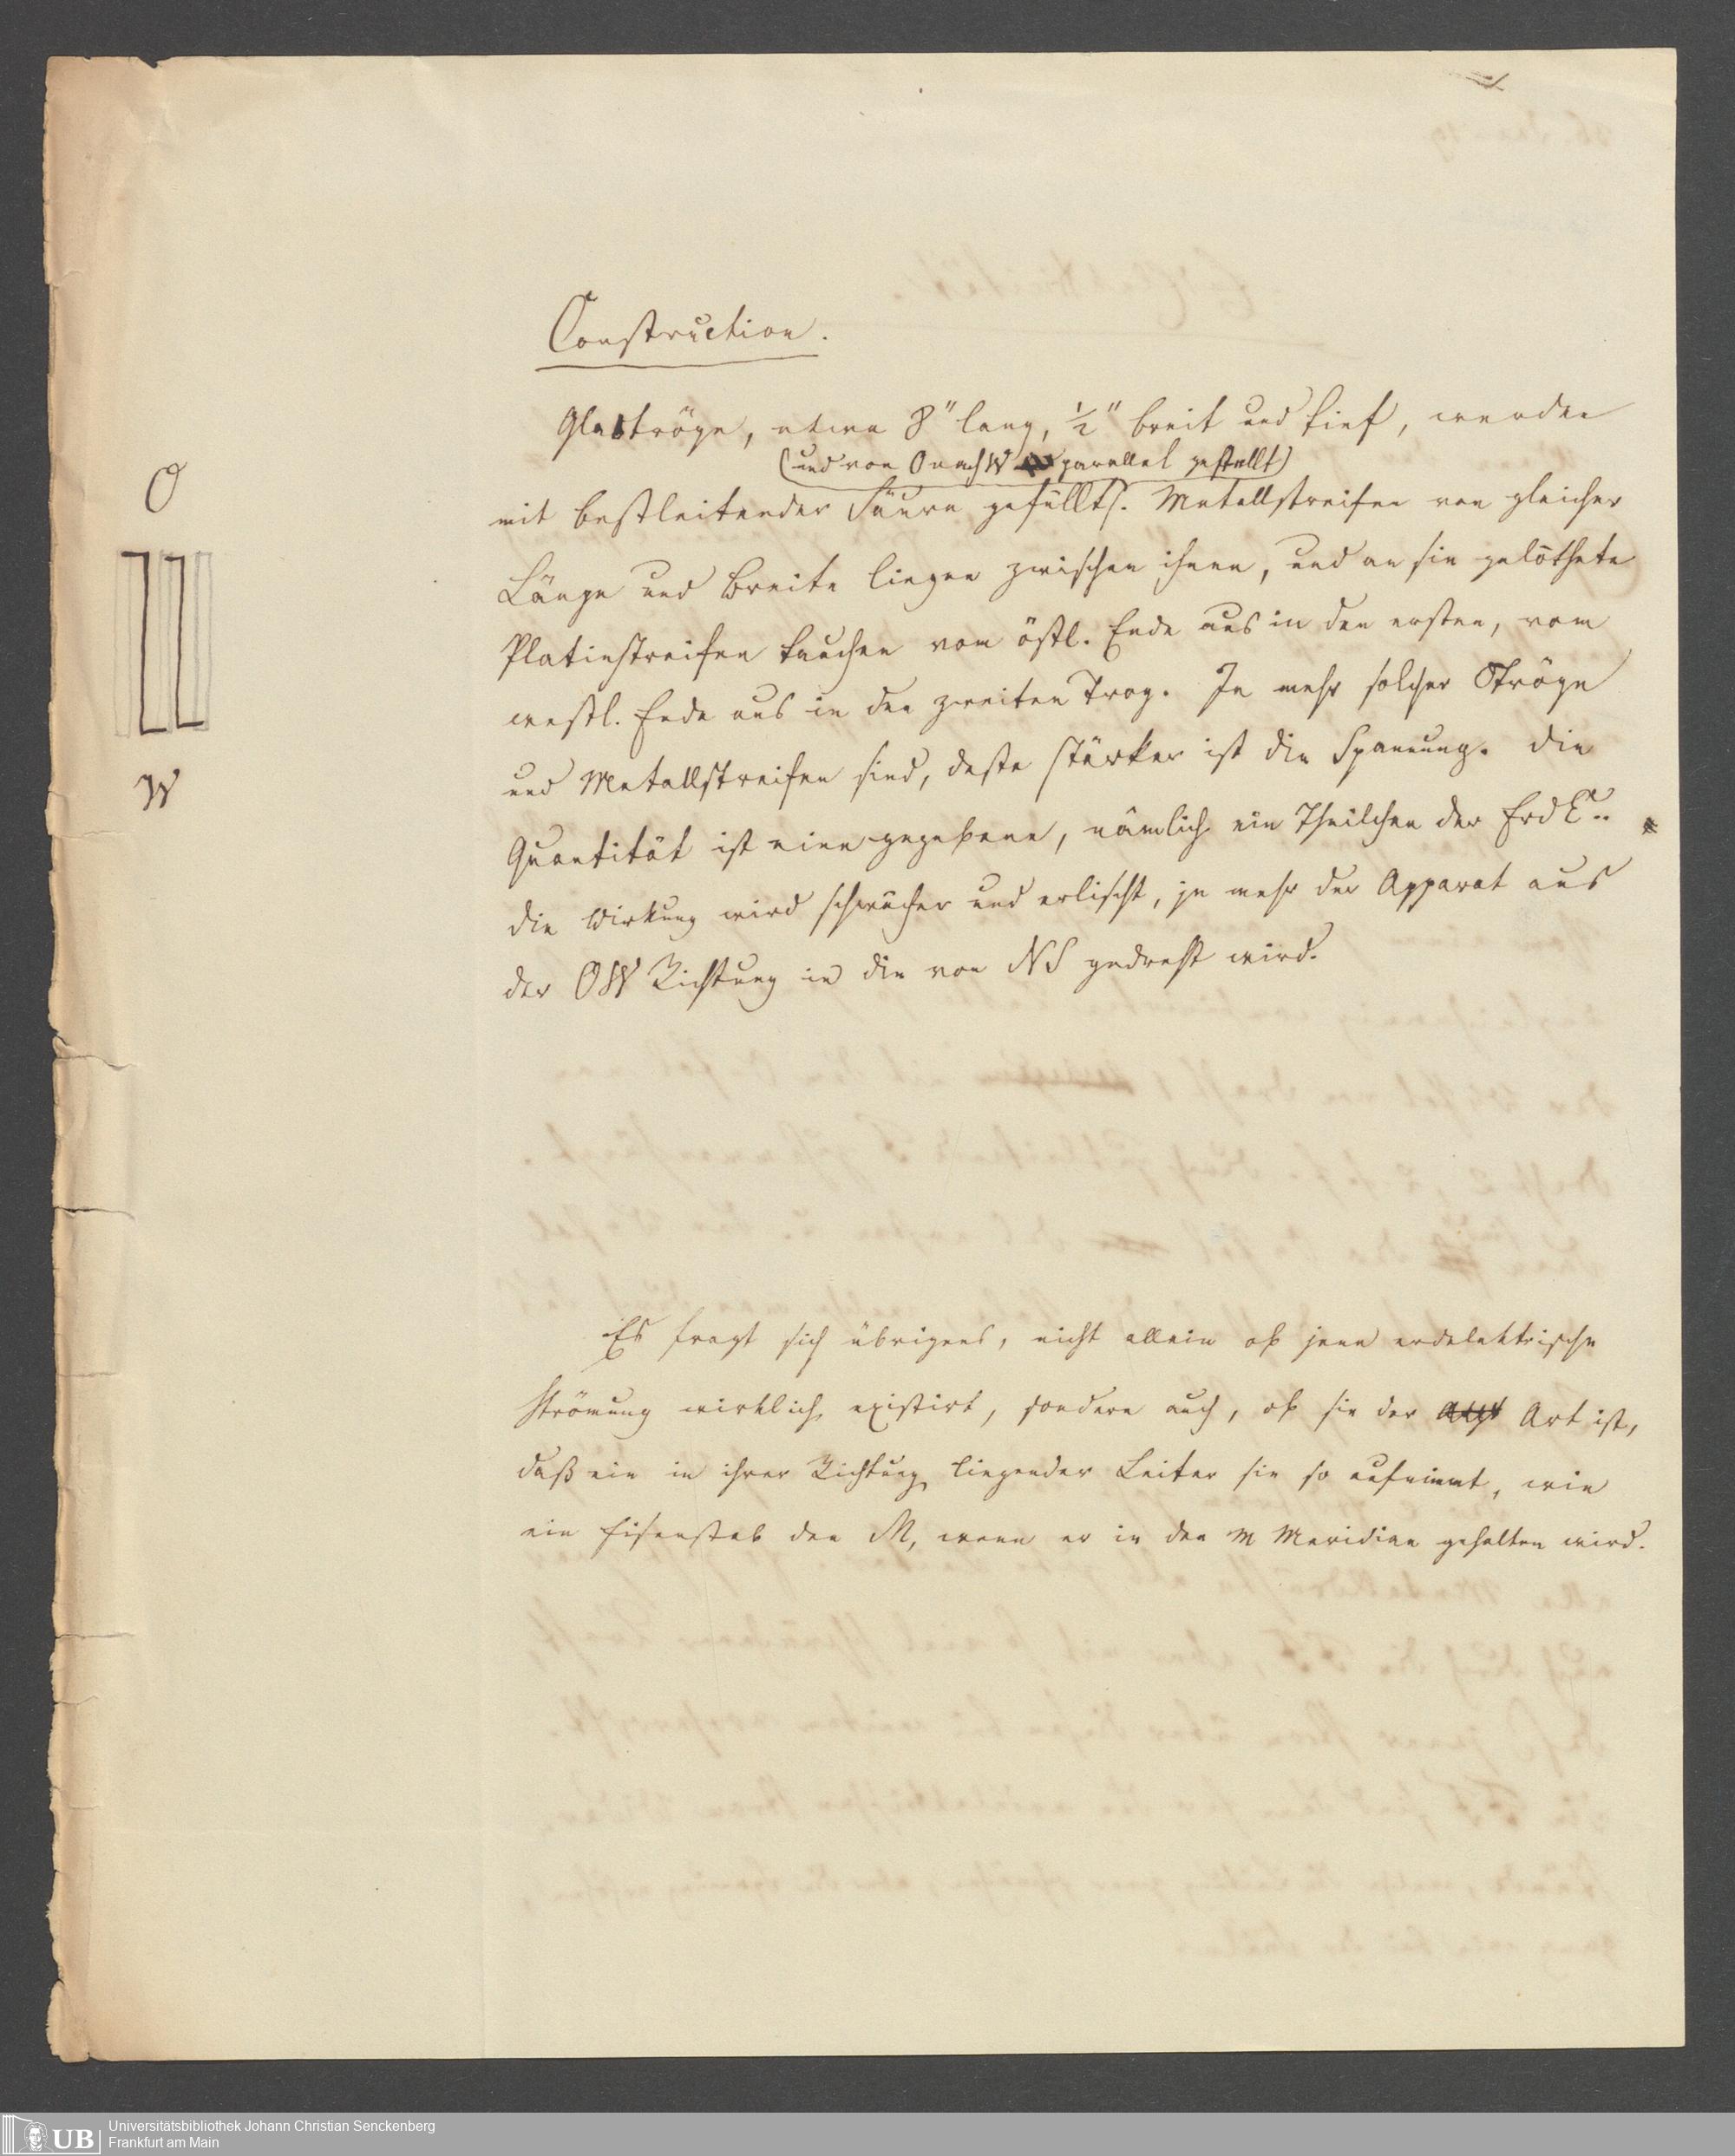 Construction.
Glaströge, etwa 8" lang, ½" breit und tief, werden
(und von O nach W parallel gestellt)
mit bestleitender Säure gefüllt. Metallstreifen von gleicher
O
Länge und Breite liegen zwischen ihnen, und an sie gelöthete
Platinstreifen tauchen vom östl. Ende aus in den ersten, vom
westl. Ende aus in den zweiten Trog. Je mehr solcher Tröge
und Metallstreifen sind, desto stärker ist die Spannung. Die
W
Quantität ist eine gegebene, nämlich ein Theilchen der Erd E..
die Wirkung wird schwächer und erlischt, je mehr der Apparat aus
der OW Richtung in die von NS gedreht wird.
Es fragt sich übrigens, nicht allein ob jene erdelektrische
Strömung wirklich existirt, sondern auch, ob sie der Art ist,
daß ein in ihrer Richtung liegender Leiter sie so aufnimmt, wie
ein Eisenstab den M, wenn er in den M Meridian gehalten wird.
UB
Universitätsbibliothek Johann Christian Senckenberg
Frankfurt am Main